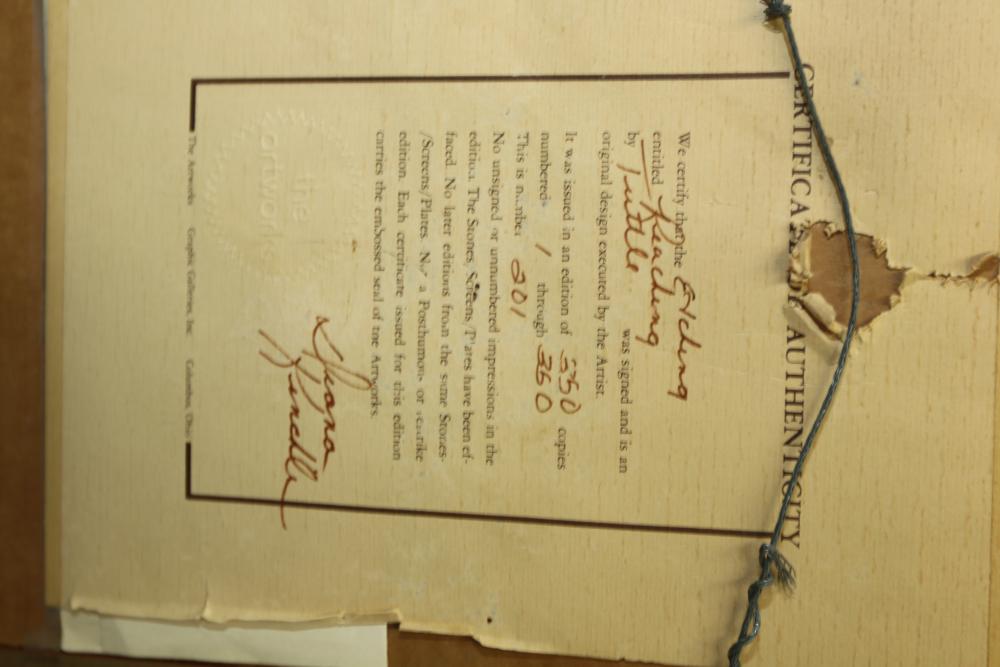 CERTIFICA OF AUTHENTICITY
We certify that the Etching
entitled Reaching
by Tuttle was signed and is an
original design executed by the Artist.
It was issued in an edition of 350 copies
numbered 1 through 360
This is number 201
No unsigned or unnumbered impressions in the
edition. The Stones, Screens/Plates have been ef-
faced. No later editions from the same Stones-
/Screens/Plates. Nor a Posthumous or restrike
edition. Each certificate issued for this edition
carries the embossed seal of the Artworks.
the
artworks
The Artworks Graphic Galleries, Inc. Columbus, Ohio